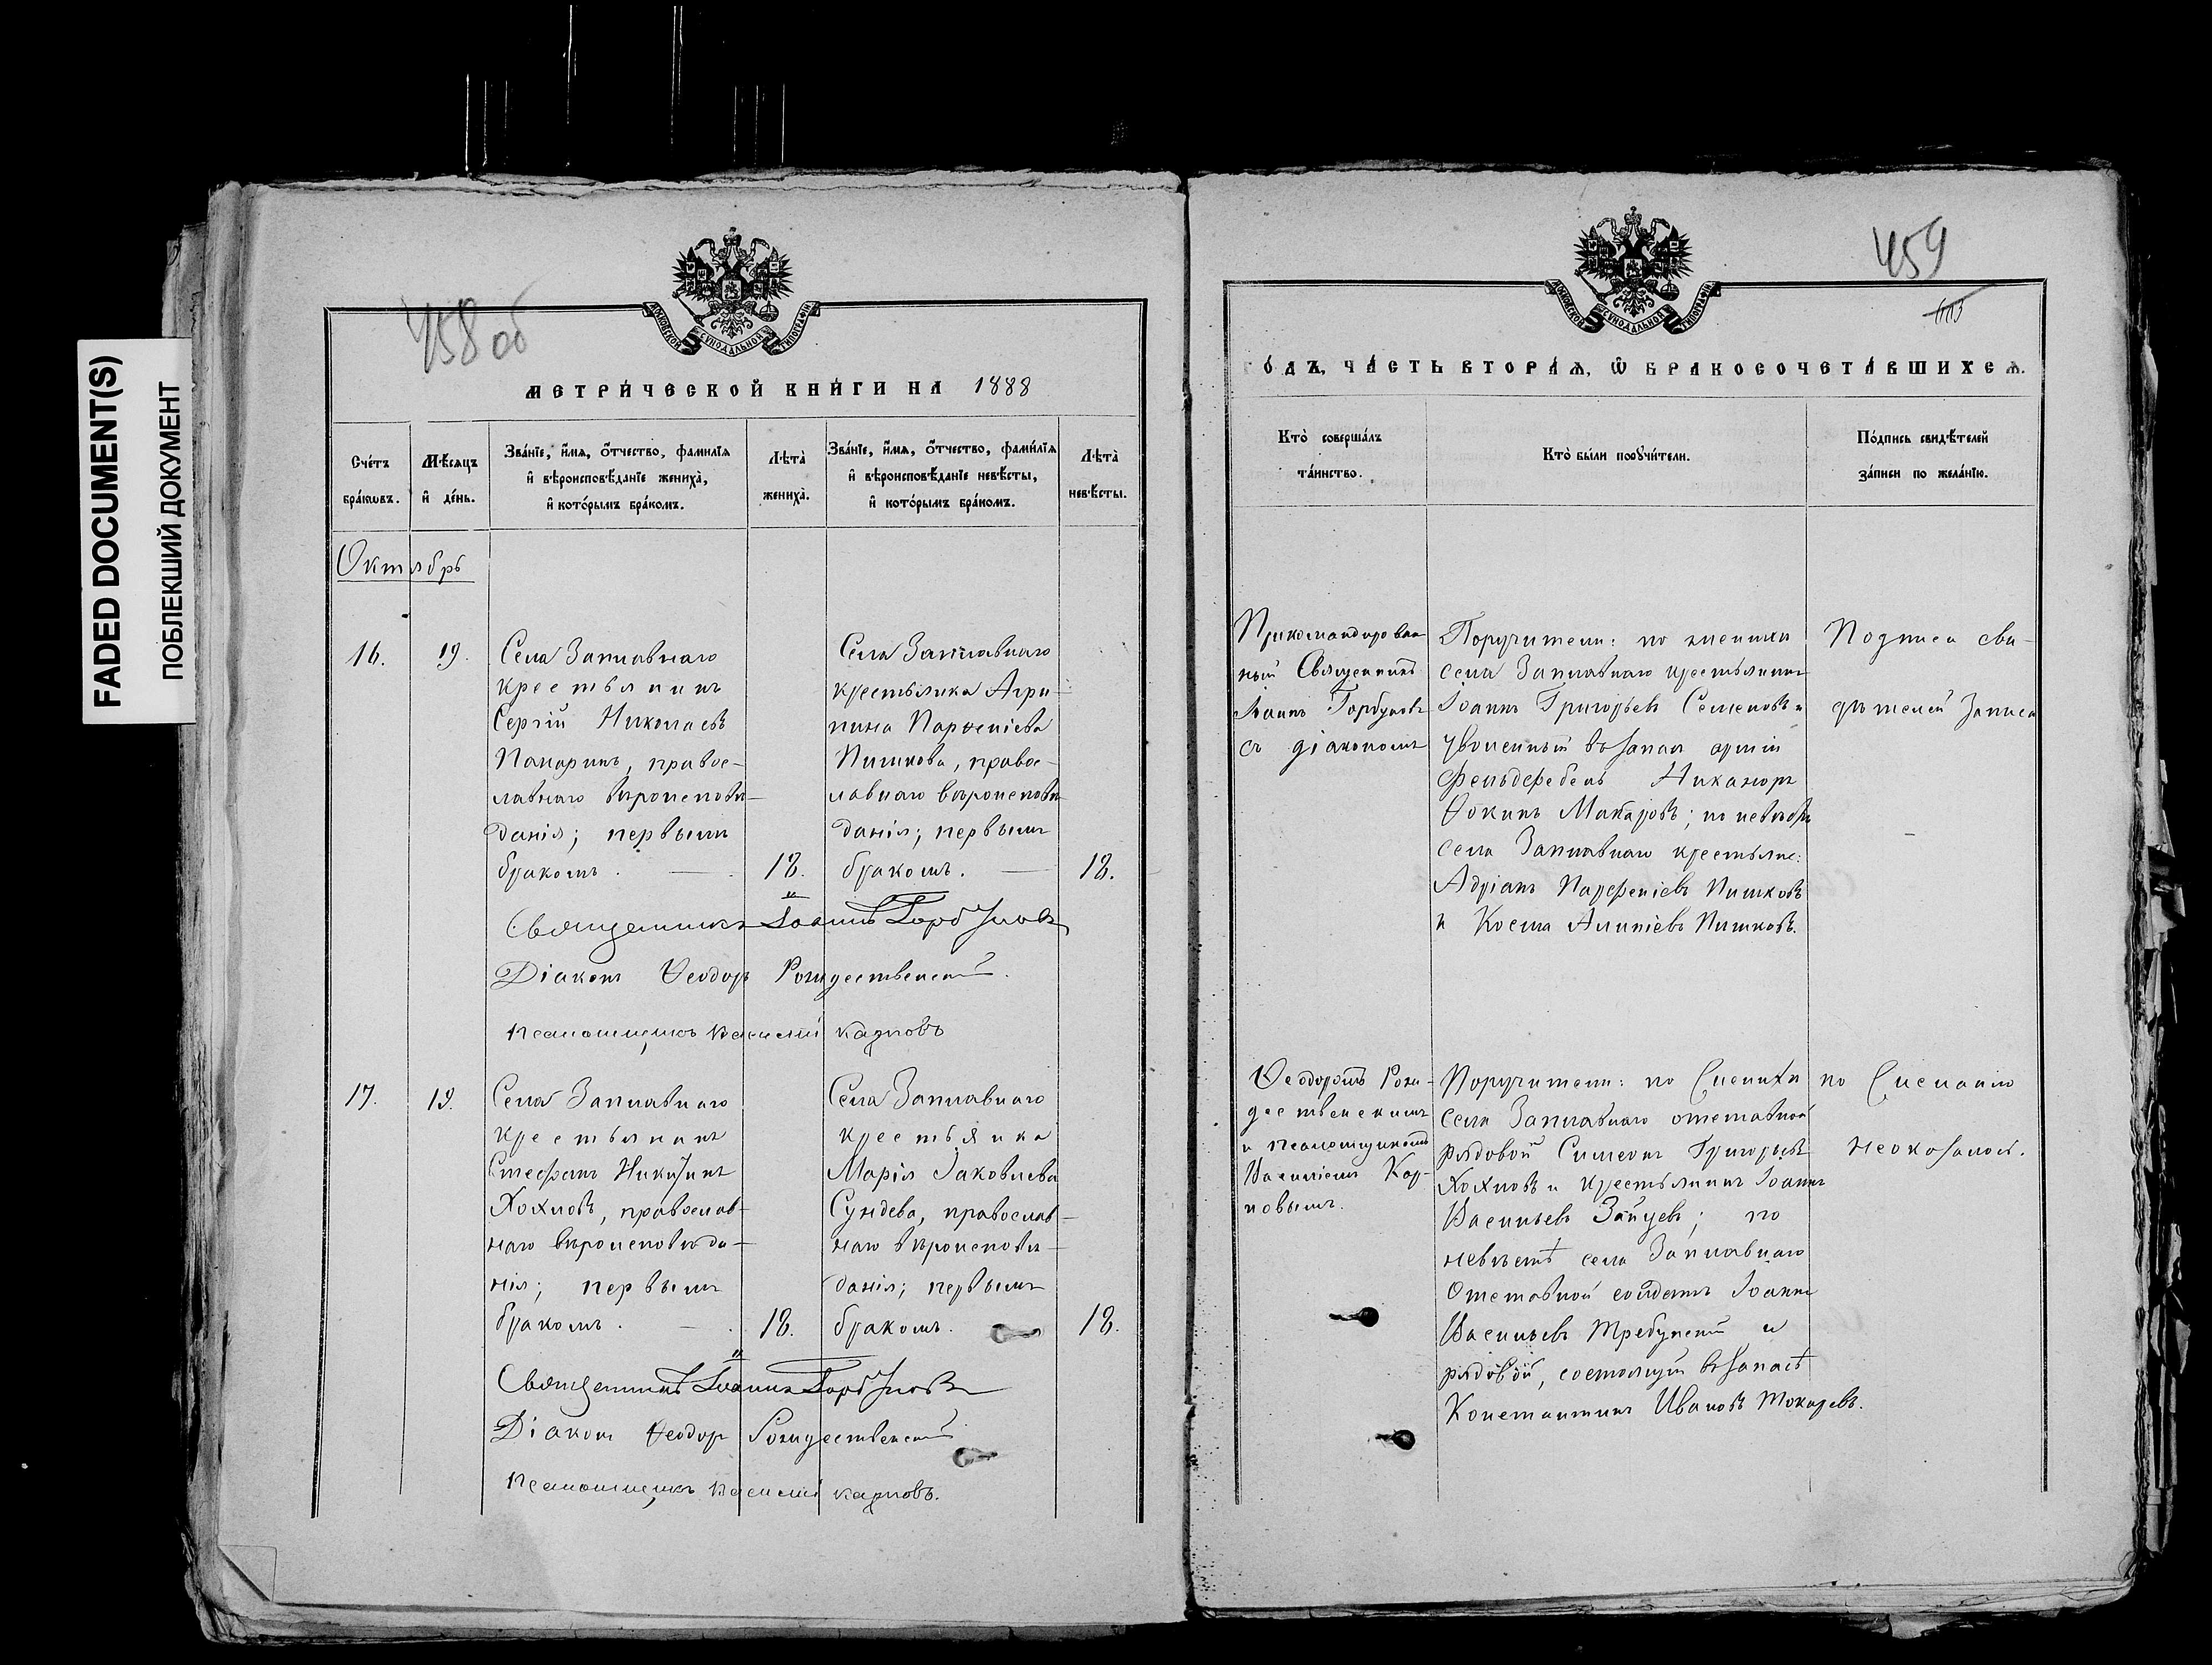 FADED DOCUMENT(S)
ПОБЛЕКШИЙ ДОКУМЕНТ
458 об
МОСКОВСКОЙ СѴНОДАЛЬНОЙ ТИПОГРАФІИ
МЕТРИ́ЧЕСКОЙ КНИ́ГИ НА 1888
Сче́тъ бра́ковъ.
Мѣ́сяцъ и҆ де́нь.
Зва́нїе, и҆́мѧ, ѻ҆́тчество, фами́лїѧ
и҆ вѣроисповѣ́данїе жениха̀,
и҆ кото́рымъ бра́комъ.
Лѣта̀
жениха̀.
Зва́нїе, и҆́мѧ, ѻ҆́тчество, фами́лїѧ
и҆ вѣроисповѣ́данїе невѣ́сты,
и҆ кото́рымъ бра́комъ.
Лѣта̀
невѣ́сты.
Октябрь
16. 19.
Села Заплавнаго
крестьянинъ
Сергій Николаевъ
православнаго вѣроисповѣ-
данія; первымъ
бракомъ. 18.
Села Заплавнаго
крестьянка Агри-
пина Парѳеніева
Пишкова, правос-
лавнаго вѣроисповѣ-
данія; первымъ
бракомъ. 18.
Священникъ Іоаннъ Горбуновъ
Діаконъ Ѳеодоръ Рождественскій.
Псаломщикъ Василій Карповъ
17. 19.
Села Заплавнаго
крестьянинъ
Стефанъ Никитинъ
Хохловъ, православ-
наго вѣроисповѣда-
нія; первымъ
бракомъ. 18.
Села Заплавнаго
крестьянка
Марія Іаковлева
православ-
наго вѣроисповѣ-
данія; первымъ
бракомъ. 18.
Священникъ Іоаннъ Горбуновъ
Діаконъ Ѳеодоръ Рождественскій
Псаломщикъ Василій Карповъ.
459
МОСКОВСКОЙ СѴНОДАЛЬНОЙ ТИПОГРАФІИ
ГО́ДЪ, ЧА́СТЬ ВТОРА́Ѧ, Ѡ҆ БРАКОСОЧЕТА́ВШИХСѦ.
Кто̀ соверша́лъ
та́инство.
Кто̀ бы́ли порꙋчи́тели.
По́дпись свидѣ́телей
за́писи по жела́нїю.
Прикомандирован
ный Священникъ
Іоаннъ Горбуновъ
съ діакономъ
Поручители: по женихѣ
села Заплавнаго крестьянинъ
Іоаннъ Григорьевъ Семеновъ и
уволенный въ запасъ арміи
фельдфебель Никаноръ
Ѳокинъ Макаровъ; по невѣстѣ
села Заплавнаго крестьяне:
Адріанъ Парфеніевъ Пишковъ
и Косма Алипіевъ Пишковъ.
Подписи сви-
дѣтелей записи
Ѳеодоромъ Рож-
дественскимъ
и псаломщикомъ
Василіемъ Кар-
повымъ.
Поручители: по женихѣ
села Заплавнаго отставной
рядовой Симеонъ Григорьевъ
Хохловъ и крестьянинъ Іоаннъ
Васильевъ Зайцевъ; по
невѣстѣ села Заплавнаго
отставной солдатъ Іоаннъ
Васильевъ Требунскій и
рядовой, состоящій въ запасѣ
Константинъ Ивановъ Токаревъ.
по желанію
неоказалось.